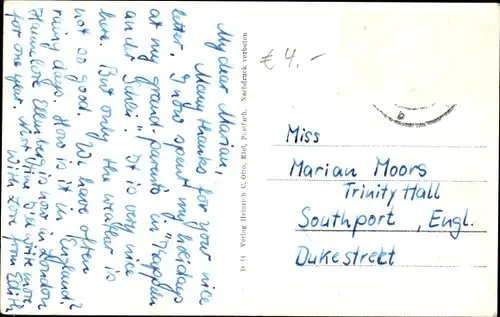 My dear Marian,
Many thanks for your nice
letter. I now spent my holidays
at my grand-parents in "Tappen-
an der Schlei". It is very nice
here. But only the weather is
not so good. We have often
rainy days. How is it in England?
Hannelore is now in London
for one year. Next time I'll write more
With Love from Edith
D 14 Verlag Heinrich C. Otto, Kiel, Postfach. Nachdruck verboten
€ 4.-
Miss
Marian Moors
Trinity Hall
Southport, Engl.
Dukestreet